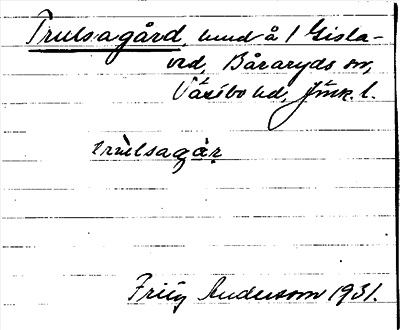 Trulsagård, hmd å 1 Gisla-
ved, Båraryds sn,
Västbo hd, Jönk. l.
trulsagår
Fritz Andersson 1931.